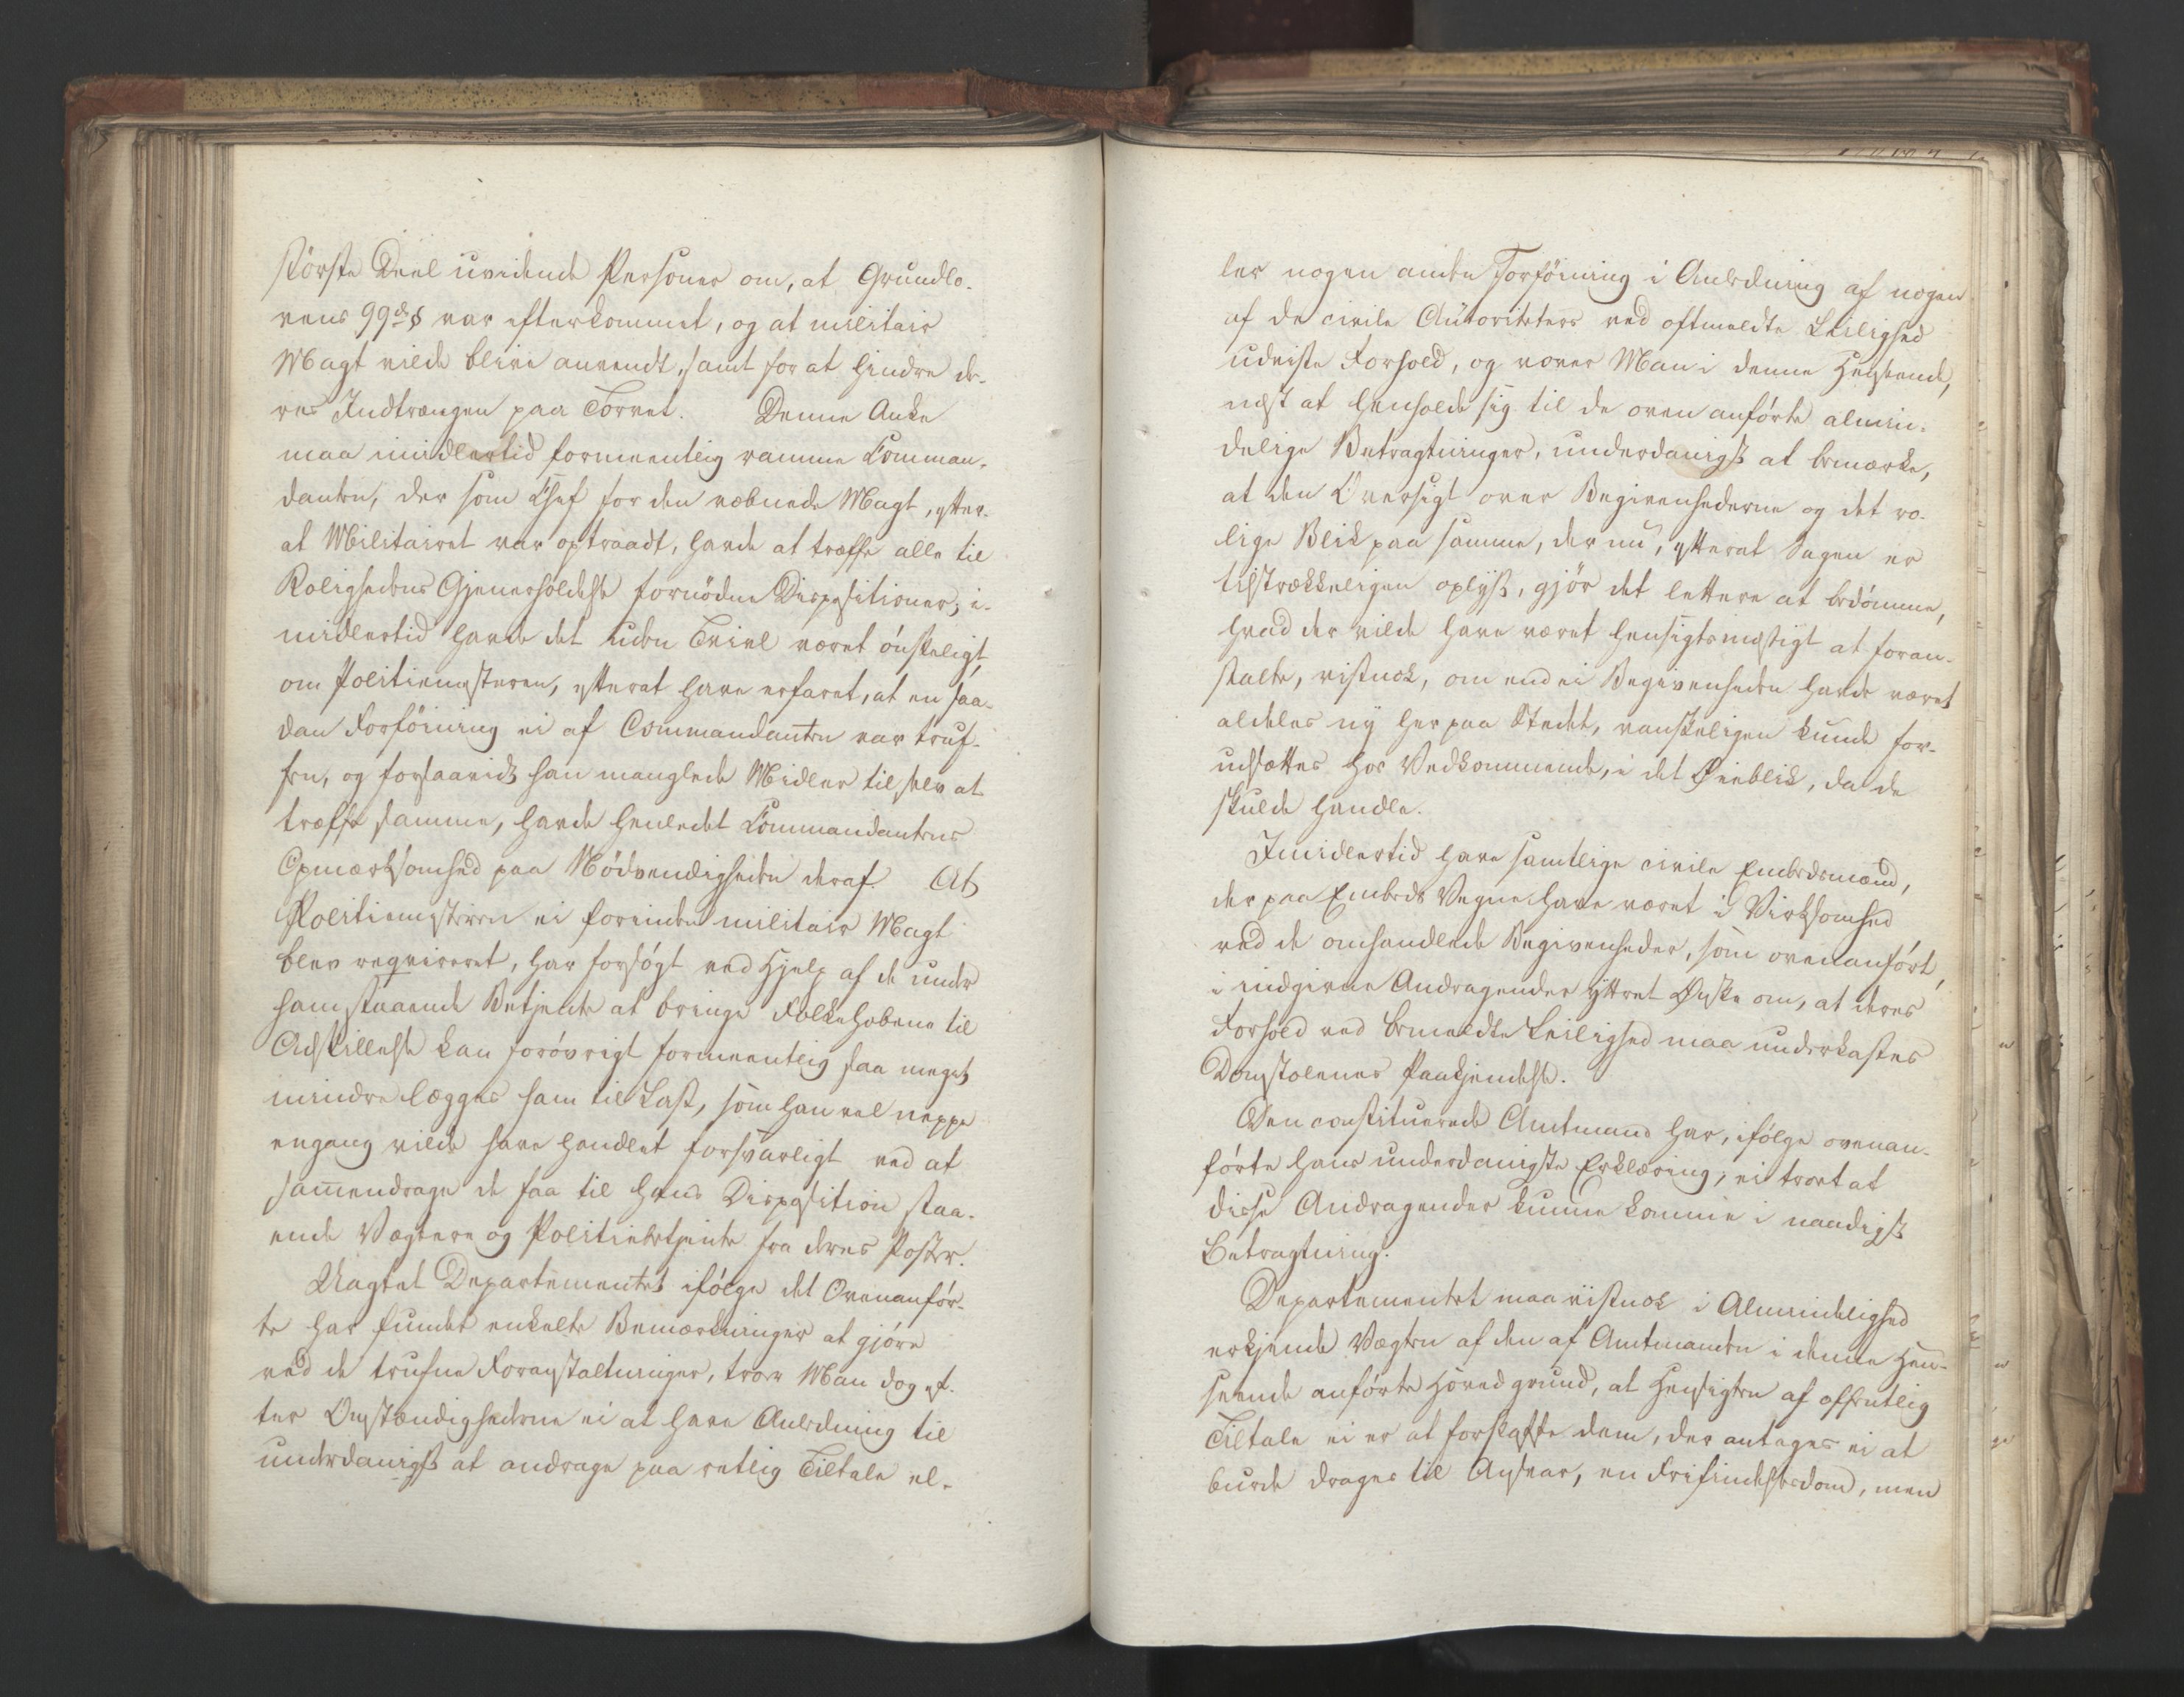 störste Deel uvidende Personer om, at Grundlo-
vens 99de § var efterkommet, og at militair
Magt vilde blive anvendt, samt for at hindre de-
res Indtrængen paa Torvet. Denne Anke
maa imidlertid formeentlig ramme Comman-
danten, der som Chef for den væbnede Magt, efter-
at Militairet var optraadt, havde at træffe alle til
Rolighedens Gjenerholdelse fornödne Dispositioner; i-
midlertid havde det uden Tvivl været önskeligt,
om Politiemesteren, efterat have erfaret, at en saa-
dan Forföining ei af Commandanten var truf-
fen, og forsaavidt han manglede Midler til selv at
træffe samme, havde henledet Commandantens
Opmærksomhed paa Nödvendigheden deraf. At
Politiemesteren ei forinden militair Magt
blev reqvireret, har forsögt ved Hjelp af de under
ham staaende Betjente at bringe Folkehobene til
Adskillelse kan forövrigt formeentlig saa meget
mindre lægges ham til Last, som han vel neppe
engang vilde have handlet forsvarligt ved at
sammendrage de faa til hans Disposition staa-
ende Vægtere og Politiebetjente fra deres Poster.
Uagtet Departementet ifölge det Ovenanför-
te har fundet enkelte Bemærkninger at gjöre
ved de trufne Foranstaltninger, troer Man dog ef-
ter Omstændighederne ei at have Anledning til
underdanigst at andrage paa retlig Tiltale el-
ler nogen anden Forföining i Anledning af nogen
af de civile Autoriteters ved oftmeldte Leilighed
udviste Forhold, og vover Man i denne Henseende,
næst at henholde sig til de oven anförte almin-
delige Betragtninger, underdanigst at bemærke,
at den Oversigt over Begivenhederne og det ro-
lige Blik paa samme, der nu, efterat Sagen er
tilstrækkeligen oplyst, gjör det lettere at bedömme,
hvad der vilde have været hensigtsmæssigt at foran-
stalte, vistnok, om end ei Begivenheden havde været
aldeles ny her paa Stedet, vanskeligen kunde for-
udsættes hos Vedkommende, i det Öieblik, da de
skulde handle.
Imidlertid have samtlige civile Embedsmænd,
der paa Embeds Vegne have været i Virksomhed
ved de omhandlede Begivenheder, som ovenanfört,
i indgivne Andragender yttret Önske om, at deres
Forhold ved bemeldte Leilighed maa underkastes
Domstolenes Paakjendelse.
Den constituerede Amtmand har, ifölge ovenan-
förte hans underdanigste Erklæring, ei troet at
disse Andragender kunne komme i naadigst
Betragtning.
Departementet maa vistnok i Almindelighed
erkjende Vægten af den af Amtmanden i denne Hen-
seende anförte Hovedgrund, at Hensigten af offentlig
Tiltale ei er at forskaffe dem, der antages ei at
burde drages til Ansvar, en Frifindelsesdom, men